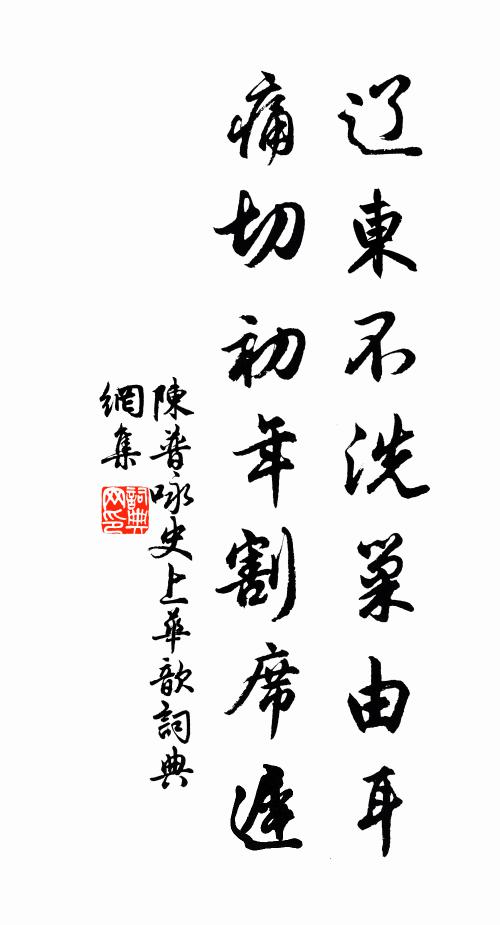 辽東不洗巢由耳
痛切初年割席遲
陳普咏史上華歆詞典
網集
詞典
网印